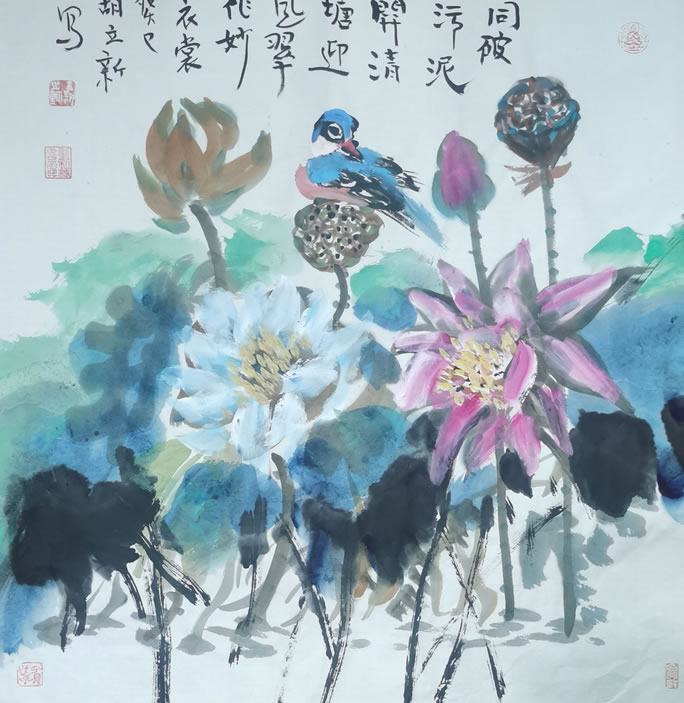 同破
污泥
開清
塘迎
風翠
作妙
衣裳
癸巳
胡立新
写